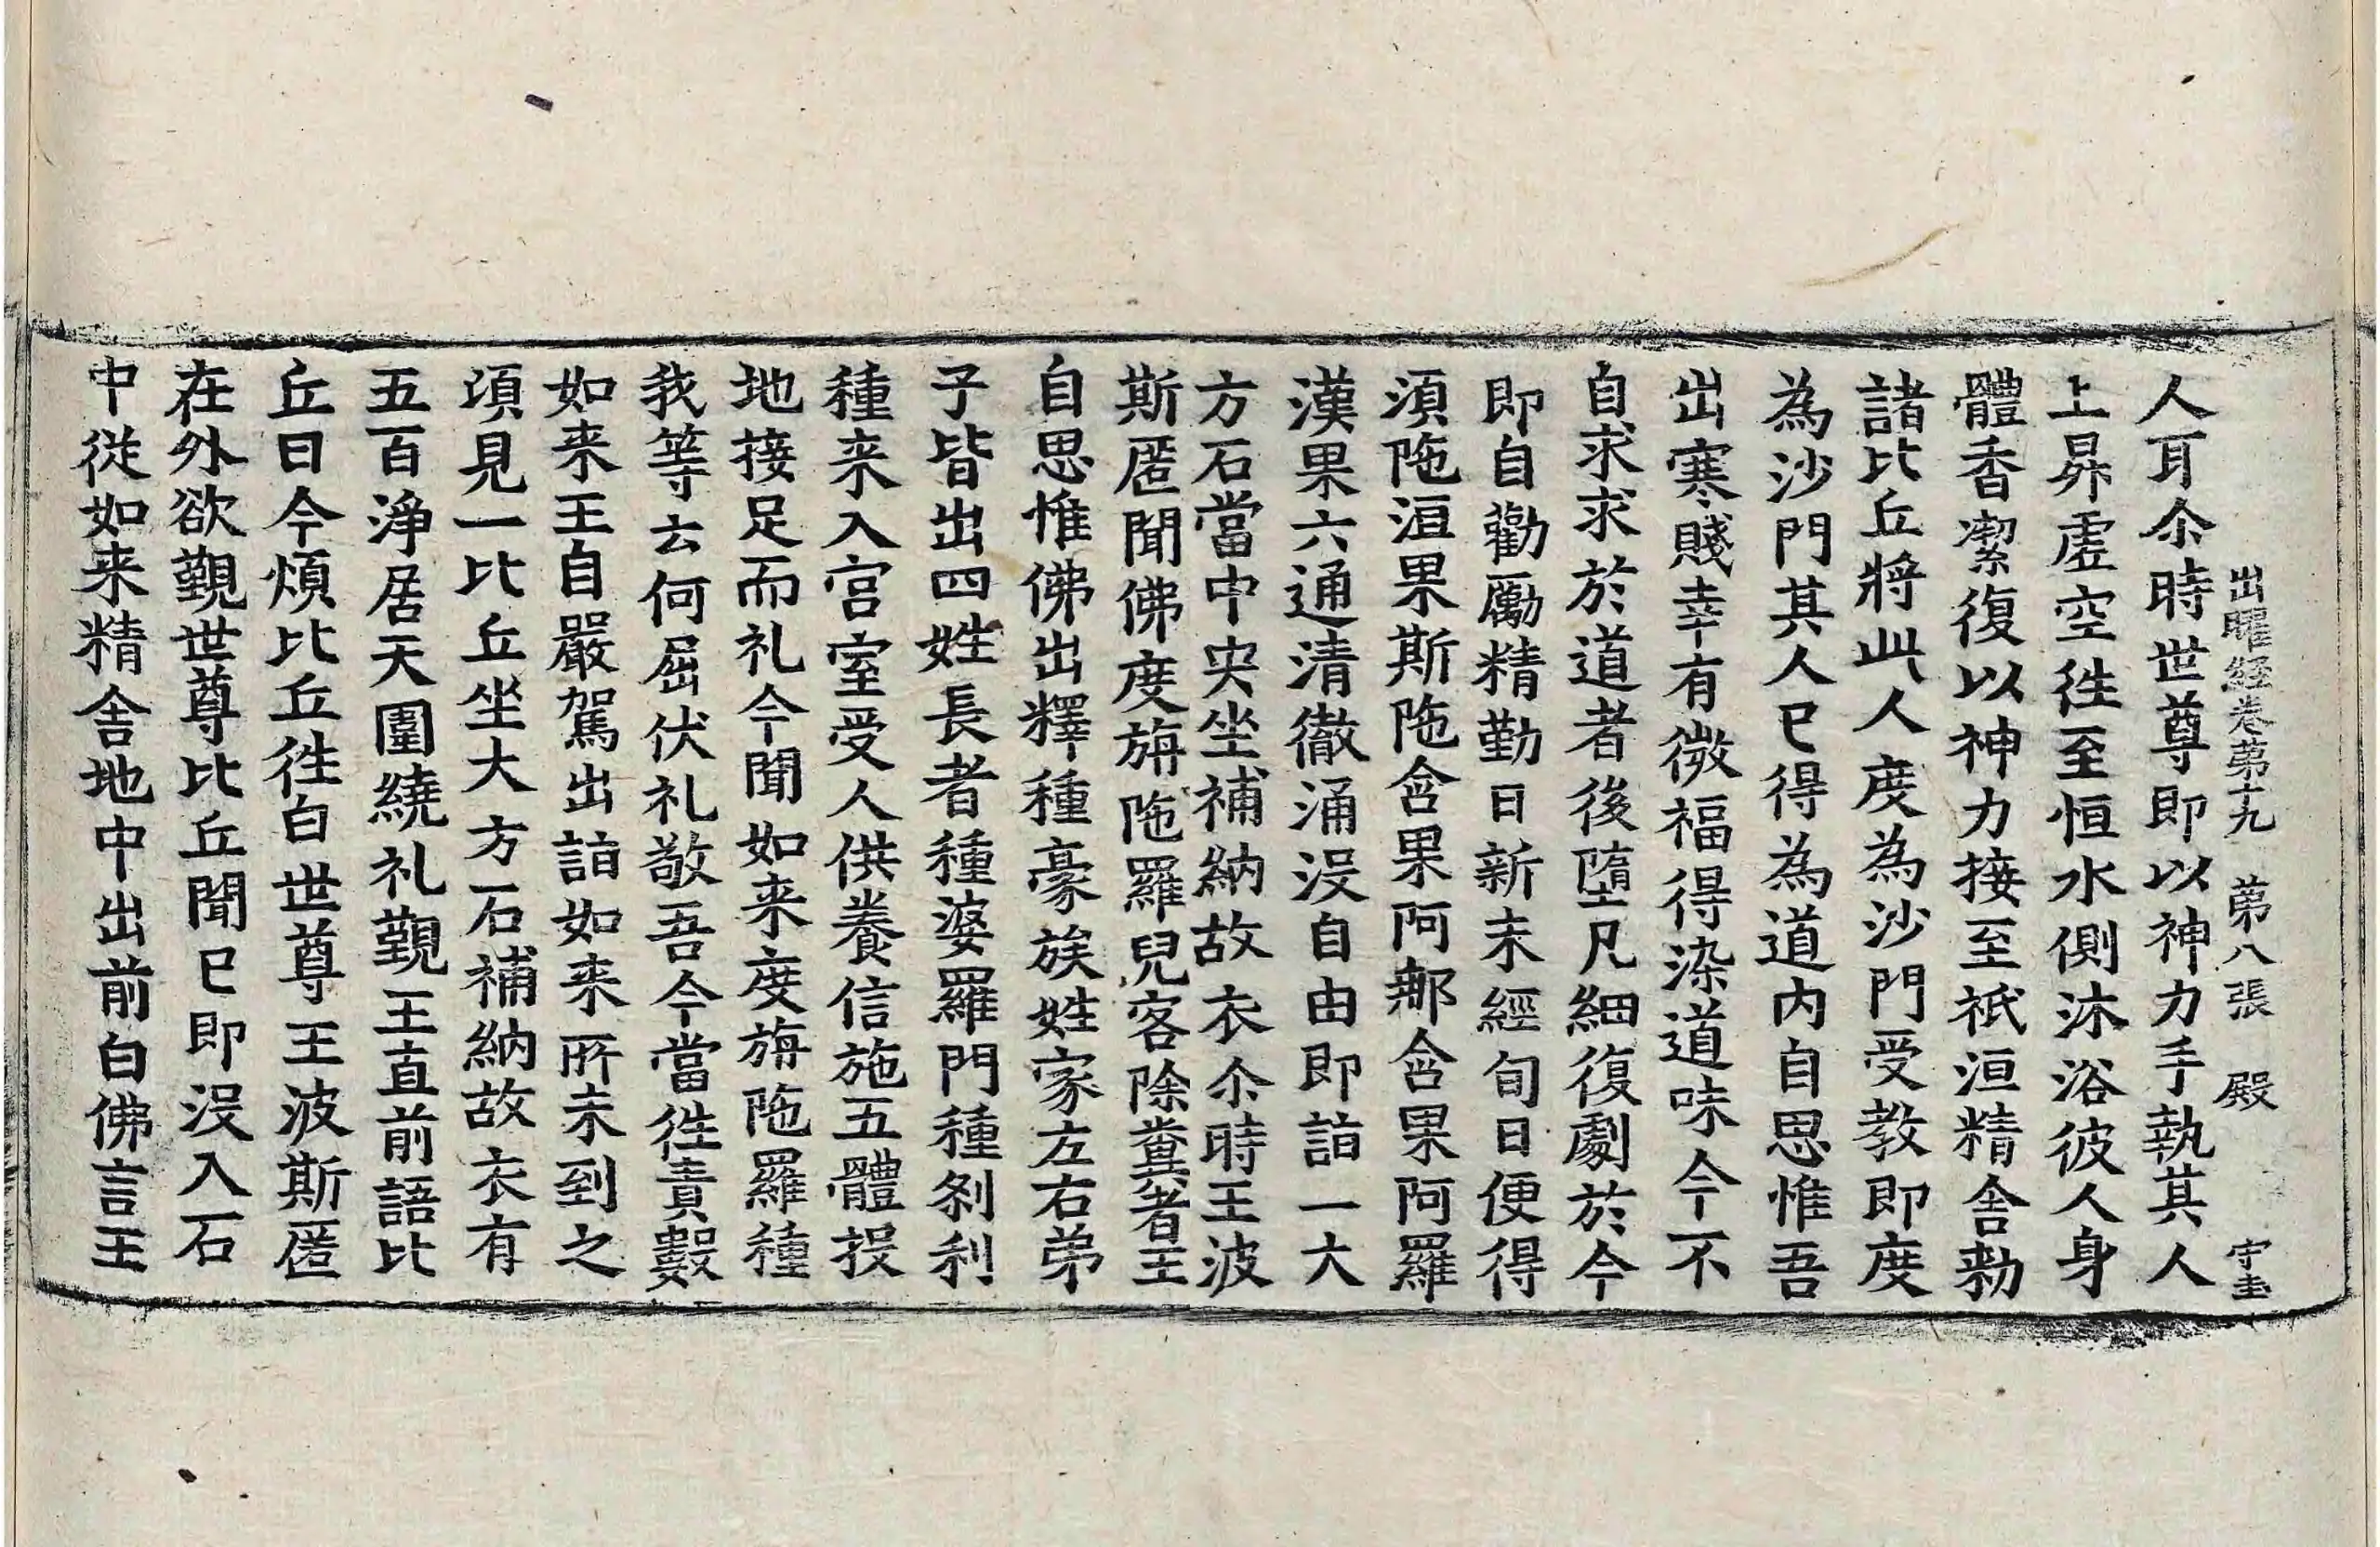 出曜經卷第十九 第八張 殿 宇圭
人耳尒時世尊即以神力手執其人
上昇虛空徃至恒水側沐浴彼人身
體香潔復以神力接至祇洹精舍勑
諸比丘將此人度為沙門受教即度
為沙門其人已得為道内自思惟吾
出寒賤幸有微福得染道味今不
自求求於道者後墮凡細復劇於今
即自勸勵精勤日新未經旬日便得
須陁洹果斯陁含果阿那含果阿羅
漢果六通清徹涌没自由即詣一大
方石當中央坐補納故衣尒時王波
斯匿聞佛度旃陁羅兒客除糞者王
自思惟佛出釋種豪族姓家左右弟
子皆出四姓長者種婆羅門種剎利
種来入宫室受人供養信施五體投
地接足而礼今聞如来度旃陁羅種
我等云何屈伏礼敬吾今當徃責數
如来王自嚴駕出詣如来所未到之
頃見一比丘坐大方石補納故衣有
五百淨居天圍繞礼覲王直前語比
丘曰今煩比丘徃白世尊王波斯匿
在外欲覲世尊比丘聞已即没入石
中從如来精舍地中出前白佛言王